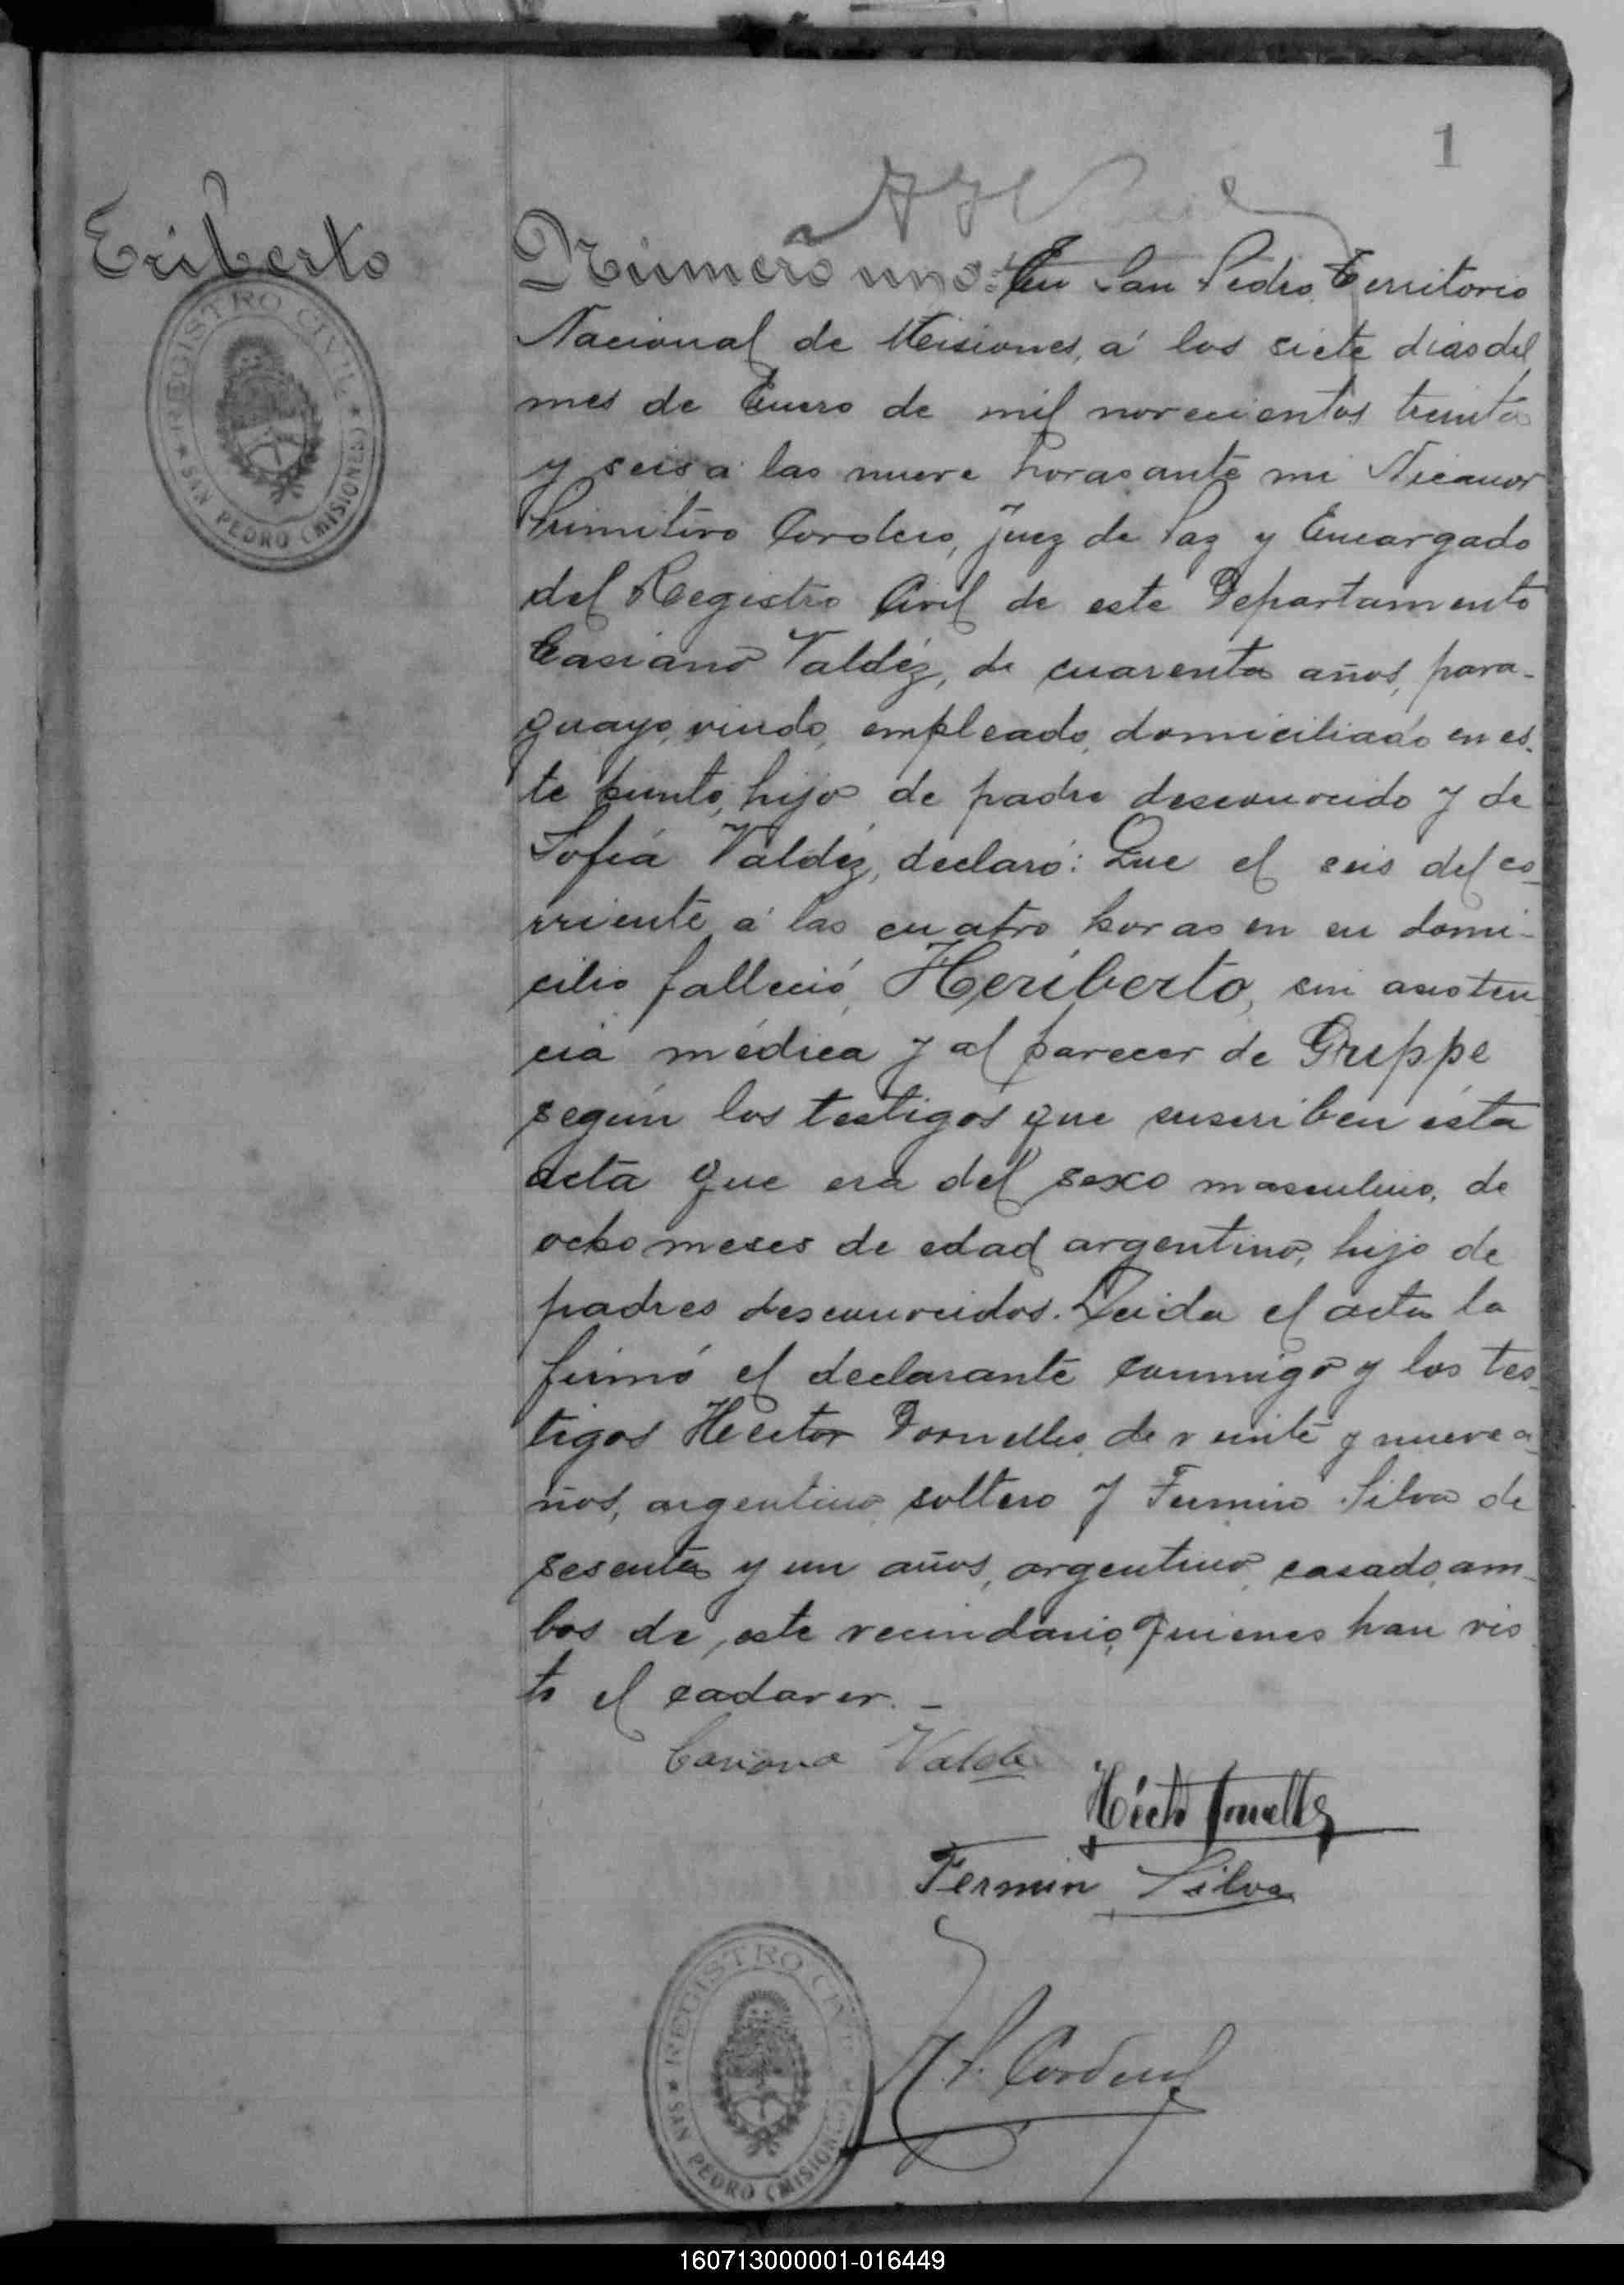 1
Eriberto
REGISTRO CIVIL
SAN PEDRO (MISIONES)
Número uno: En San Pedro, Territorio
Nacional de Misiones, á los siete dias del
mes de Enero de mil novecientos treinta
y seis á las nueve horas ante mi Nicanor
Primitivo Cordero, Juez de Paz y Encargado
del Registro Civil de este Departamento
Casiano Valdéz, de cuarenta años, para-
guayo, viudo, empleado, domiciliado en es-
te punto, hijo de padre desconocido y de
Sofía Valdéz, declaró: Que el seis del co-
rriente á las cuatro horas en su domi-
cilio falleció, Heriberto, sin asisten
cia médica y al parecer de Grippe
según los testigos que suscriben ésta
acta que era del sexo masculino, de
ocho meses de edad argentino, hijo de
padres desconocidos. Leida el acta la
firmó el declarante conmigo y los tes-
tigos Hector Dornelles, de veinte y nueve a-
ños, argentino, soltero y Fermin Silva de
sesenta y un años, argentino, casado, am-
bos de este vecindario, quienes han vis
to el cadaver. -
Casiano Valde
Héctor Dornelles
Fermin Silva
REGISTRO CIVIL
SAN PEDRO (MISIONES)
N. P. Cordero
160713000001-016449